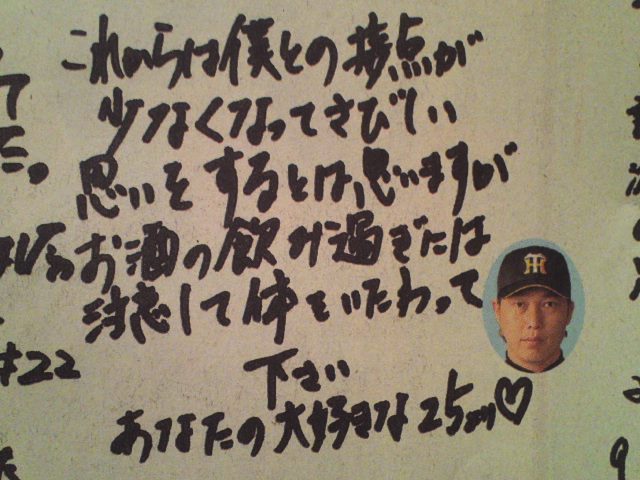 これからは僕との接点が
少なくなってさびしい
思いをするとは、思いますが
お酒の飲み過ぎには
注意して体をいたわって
下さい
あなたの大好きな25より♡
て
た。
#22
た
の
9